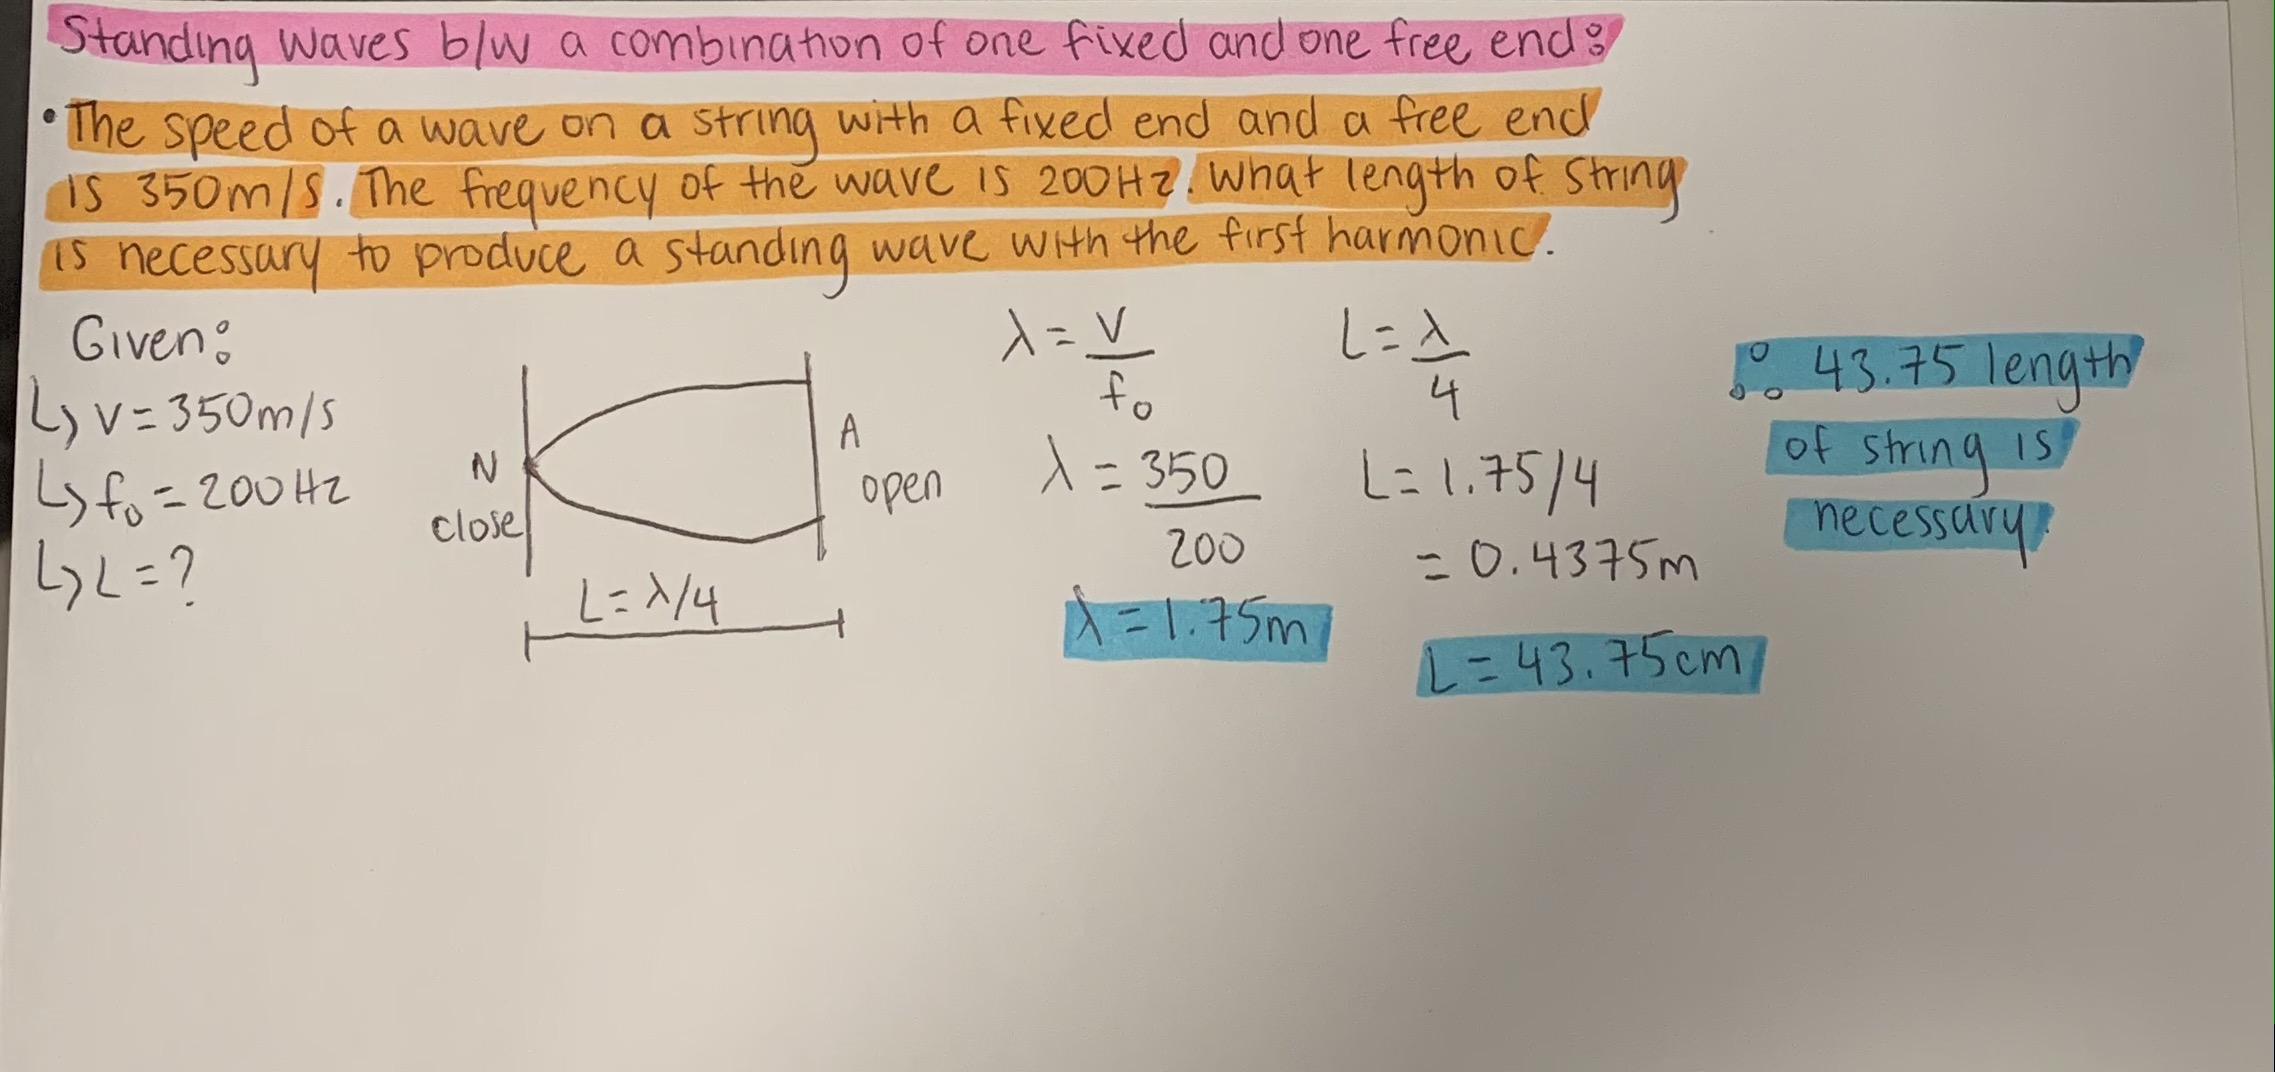 Standing waves b/w a combination of one fixed and one free end:
• The speed of a wave on a string with a fixed end and a free end
is 350m/s. The frequency of the wave is 200Hz. What length of string
is necessary to produce a standing wave with the first harmonic.
Given:
↳ v = 350m/s
↳ f₀ = 200Hz
↳ L = ?
N
close
A
open
L = λ/4
λ = v/f₀
λ = 350/200
λ = 1.75m
L = λ/4
L = 1.75/4
= 0.4375m
L = 43.75cm
∴ 43.75 length
of string is
necessary.